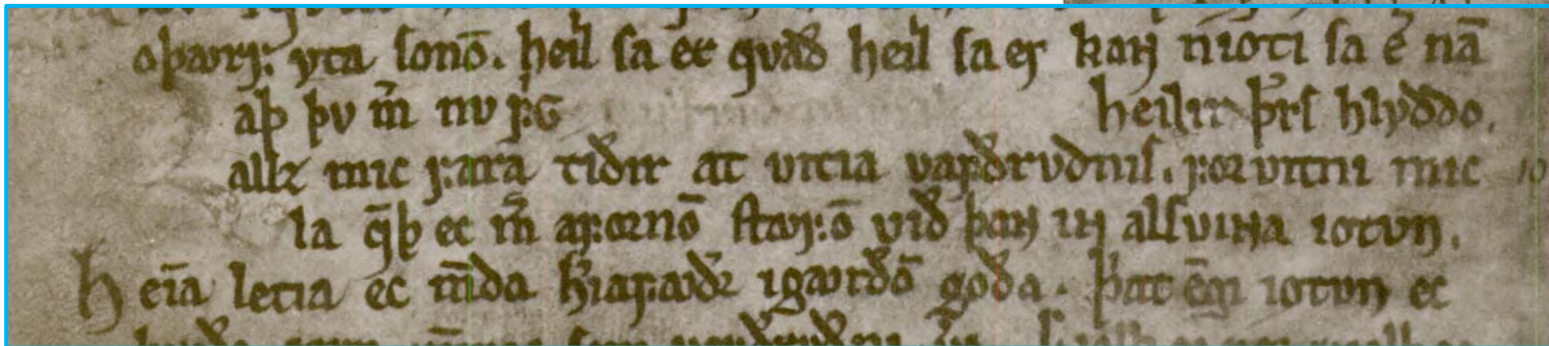 oþaurꝼ yta ſonō. heıl ſa er qvað heıl ſa er kaɴ nıotı ſa ē nā
aþ þv m̄ nv ꝼ͛G heılır þ͛rſ hlyddo.
allz mıc ꝼara tıðır at vıtıa vaꝼðrvðnıſ. ꝼoꝛvıtnı mıc
la q̄þ ec m̄ aꝼoꝛnō ſtavꝼō vıð þaɴ ıɴ alſvıɴa ıotvn.
Heı̄a letıa ec m̄da h͛ıaꝼavðr ıgavrðō goða. þat ēgı ıotvn ec